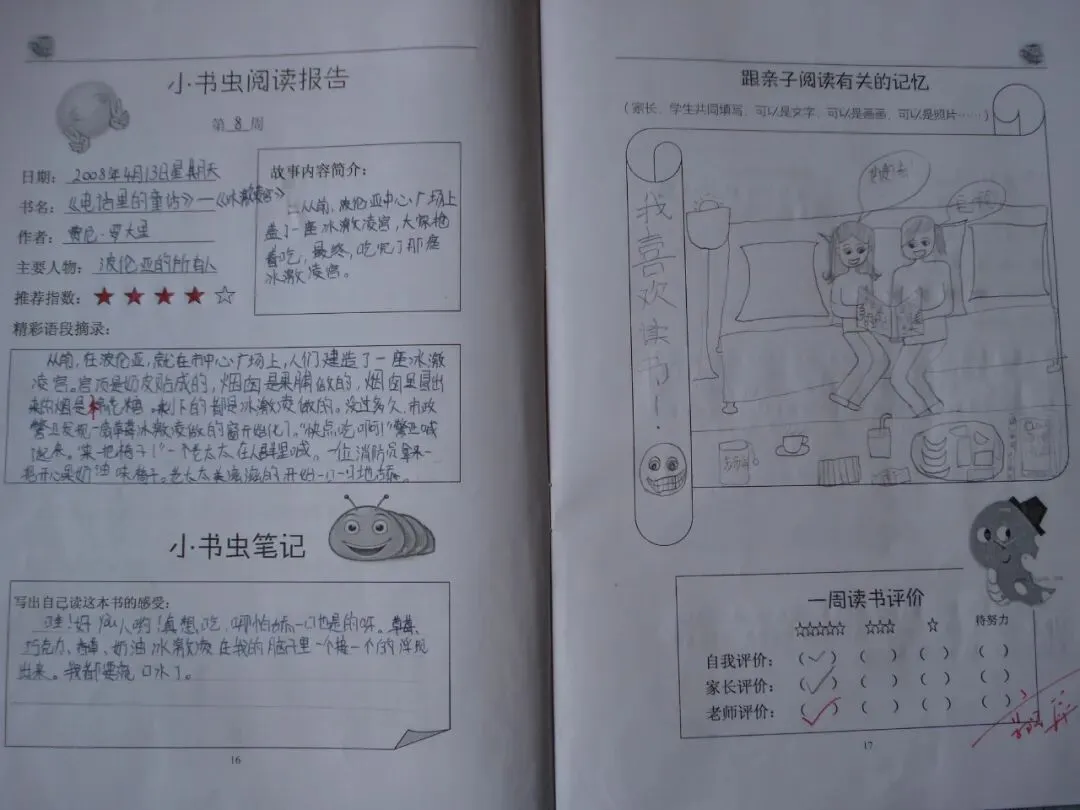 小书虫阅读报告
第 8 周
日期：2008年4月13日星期天
书名：《电话里的童话》—《冰激凌宫》
作者：贾尼·罗大里
主要人物：波伦亚的所有人
推荐指数：★★★★☆
故事内容简介：
从前，波伦亚中心广场上
盖了一座冰激凌宫，大家抢
着吃，最终，吃完了那座
冰激凌宫。
精彩语段摘录：
从前，在波伦亚，就在市中心广场上，人们建造了一座冰激
凌宫。宫顶是奶皮贴成的，烟囱是果脯做的，烟囱里冒出
来的烟是棉花糖。剩下的都是冰激凌做的。没过多久，市政
警卫发现一扇草莓冰激凌做的窗开始化了。“快点吃啊！”警卫喊
起来。“来一把椅子！”一个老太太在人群里喊。一位消防员拿来一
把开心果奶油味椅子。老太太美滋滋的开始一口一口地舔。
小书虫笔记
写出自己读这本书的感受：
哇！好馋人哟！真想吃，哪怕舔一口也是的呀。草莓、
巧克力、香草、奶油冰激凌在我的脑子里一个接一个的浮现
出来。我都要流口水了。
16
跟亲子阅读有关的记忆
（家长、学生共同填写，可以是文字，可以是画画，可以是照片……）
我喜欢读书！
一周读书评价
☆☆☆☆☆ ☆☆☆ ☆ 待努力
自我评价：（✓）（ ）（ ）（ ）
家长评价：（✓）（ ）（ ）（ ）
老师评价：（✓）（ ）（ ）（ ）
17